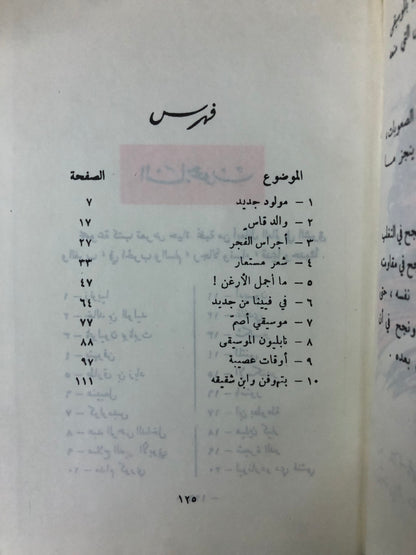 فهرس
الموضوع الصفحة
١ – مولود جديد ٧
٢ – والد قاسٍ ١٧
٣ – أجراس الفجر ٢٧
٤ – شعر مستعار ٣٣
٥ – ما أجمل الأرغن ! ٤٧
٦ – في فيينا من جديد ٦٤
٧ – موسيقي أصمّ ٧٧
٨ – نابليون الموسيقى ٨٨
٩ – أوقات عصيبة ٩٧
١٠ – بتهوفن وابن شقيقه ١١١
١٢٥
الصعوبات ،
ينجز مــا
نفسه ، حتى
وتنجح في أن
بعده .